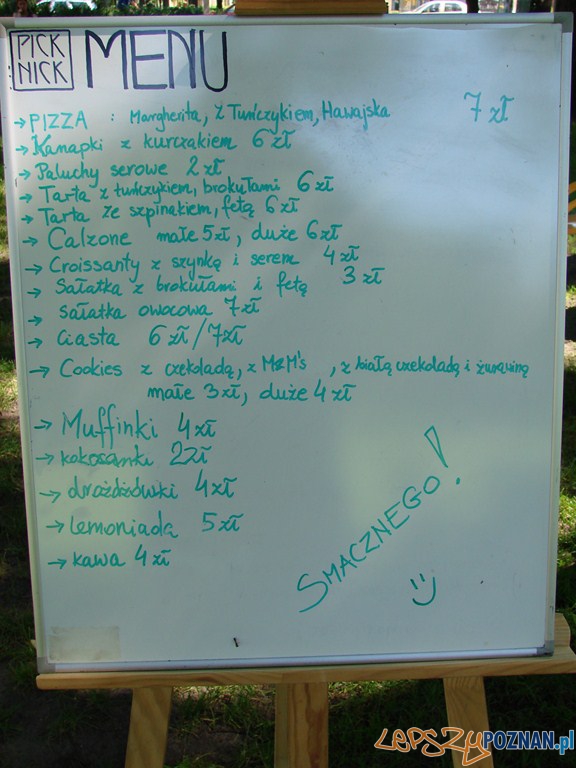 PICK
NICK
MENU
→ PIZZA : Margherita, z Tuńczykiem, Hawajska 7 zł
→ Kanapki z kurczakiem 6 zł
→ Paluchy serowe 2 zł
→ Tarta z tuńczykiem, brokułami 6 zł
→ Tarta ze szpinakiem, fetą 6 zł
→ Calzone małe 5 zł, duże 6 zł
→ Croissanty z szynką i serem 4 zł
→ Sałatka z brokułami i fetą 3 zł
→ sałatka owocowa 7 zł
→ ciasta 6 zł / 7 zł
→ Cookies z czekoladą, z M&M's , z białą czekoladą i żurawiną
małe 3 zł, duże 4 zł
→ Muffinki 4 zł
→ kokosanki 2 zł
→ drożdżówki 4 zł
→ Lemoniada 5 zł
→ kawa 4 zł
SMACZNEGO!
:)
LEPSZYPOZNAN.pl